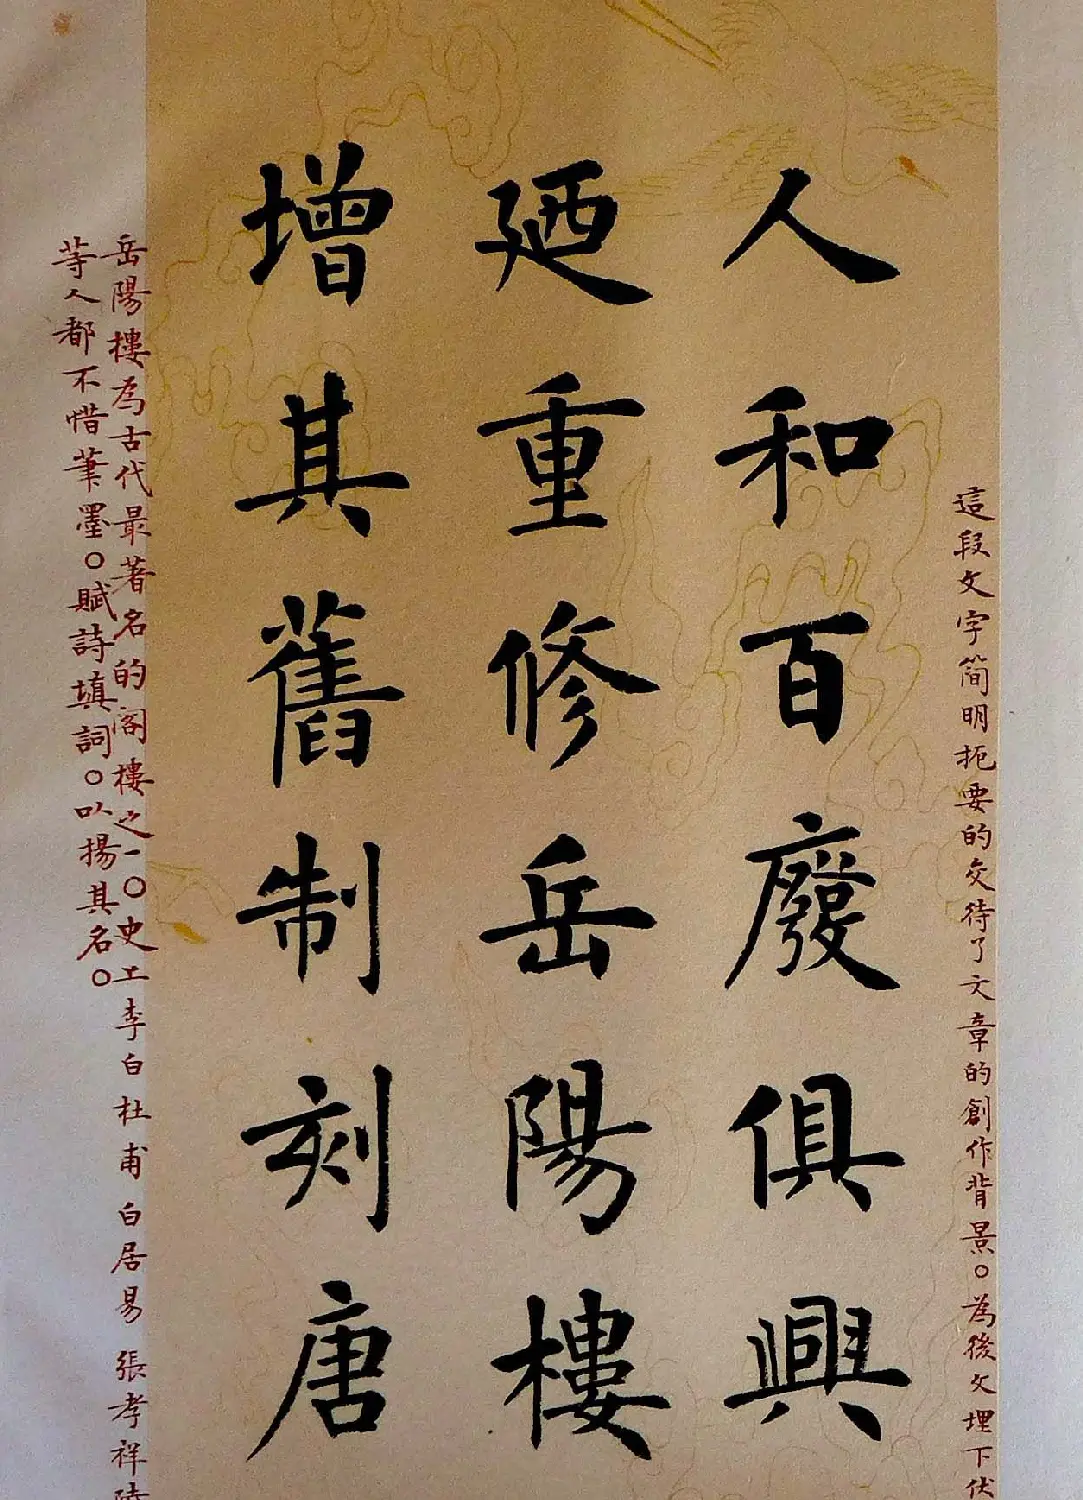 這段文字简明扼要的交待了文章的創作背景。為後文埋下伏
人和百廢俱興
廼重修岳陽樓
增其舊制刻唐
岳陽樓為古代最著名的阁樓之一。史上李白杜甫白居易張孝祥陸
等人都不惜筆墨。賦詩填詞。以揚其名。